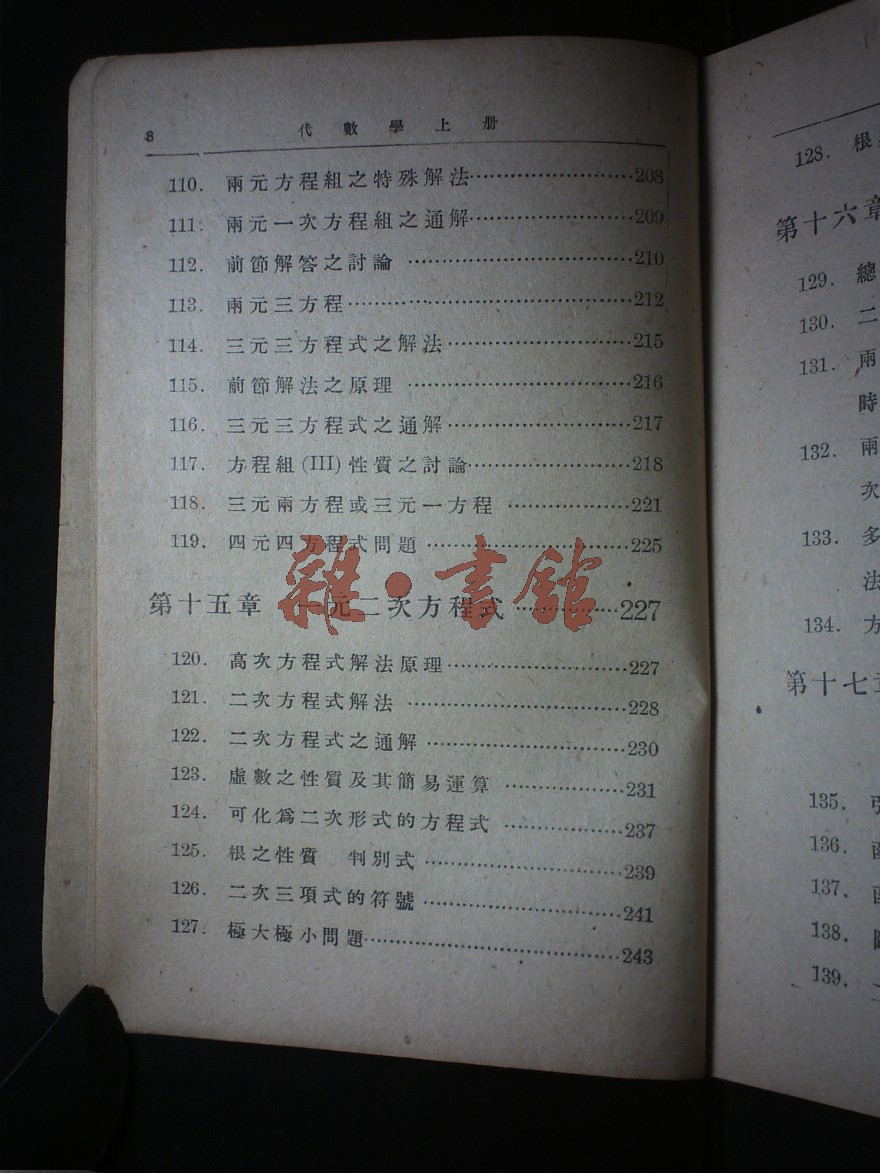 8 代數學上册
110. 兩元方程組之特殊解法………………208
111. 兩元一次方程組之通解………………209
112. 前節解答之討論………………210
113. 兩元三方程………………212
114. 三元三方程式之解法………………215
115. 前節解法之原理………………216
116. 三元三方程式之通解………………217
117. 方程組(III)性質之討論………………218
118. 三元兩方程或三元一方程………………221
119. 四元四方程式問題………………225
第十五章 一元二次方程式………………227
雜·書館
120. 高次方程式解法原理………………227
121. 二次方程式解法………………228
122. 二次方程式之通解………………230
123. 虛數之性質及其簡易運算………………231
124. 可化爲二次形式的方程式………………237
125. 根之性質 判別式………………239
126. 二次三項式的符號………………241
127. 極大極小問題………………243
128. 根
第十六章
129. 總
130. 二
131. 兩
時
132. 兩
次
133. 多
法
134. 方
第十七章
135.
136.
137.
138.
139.